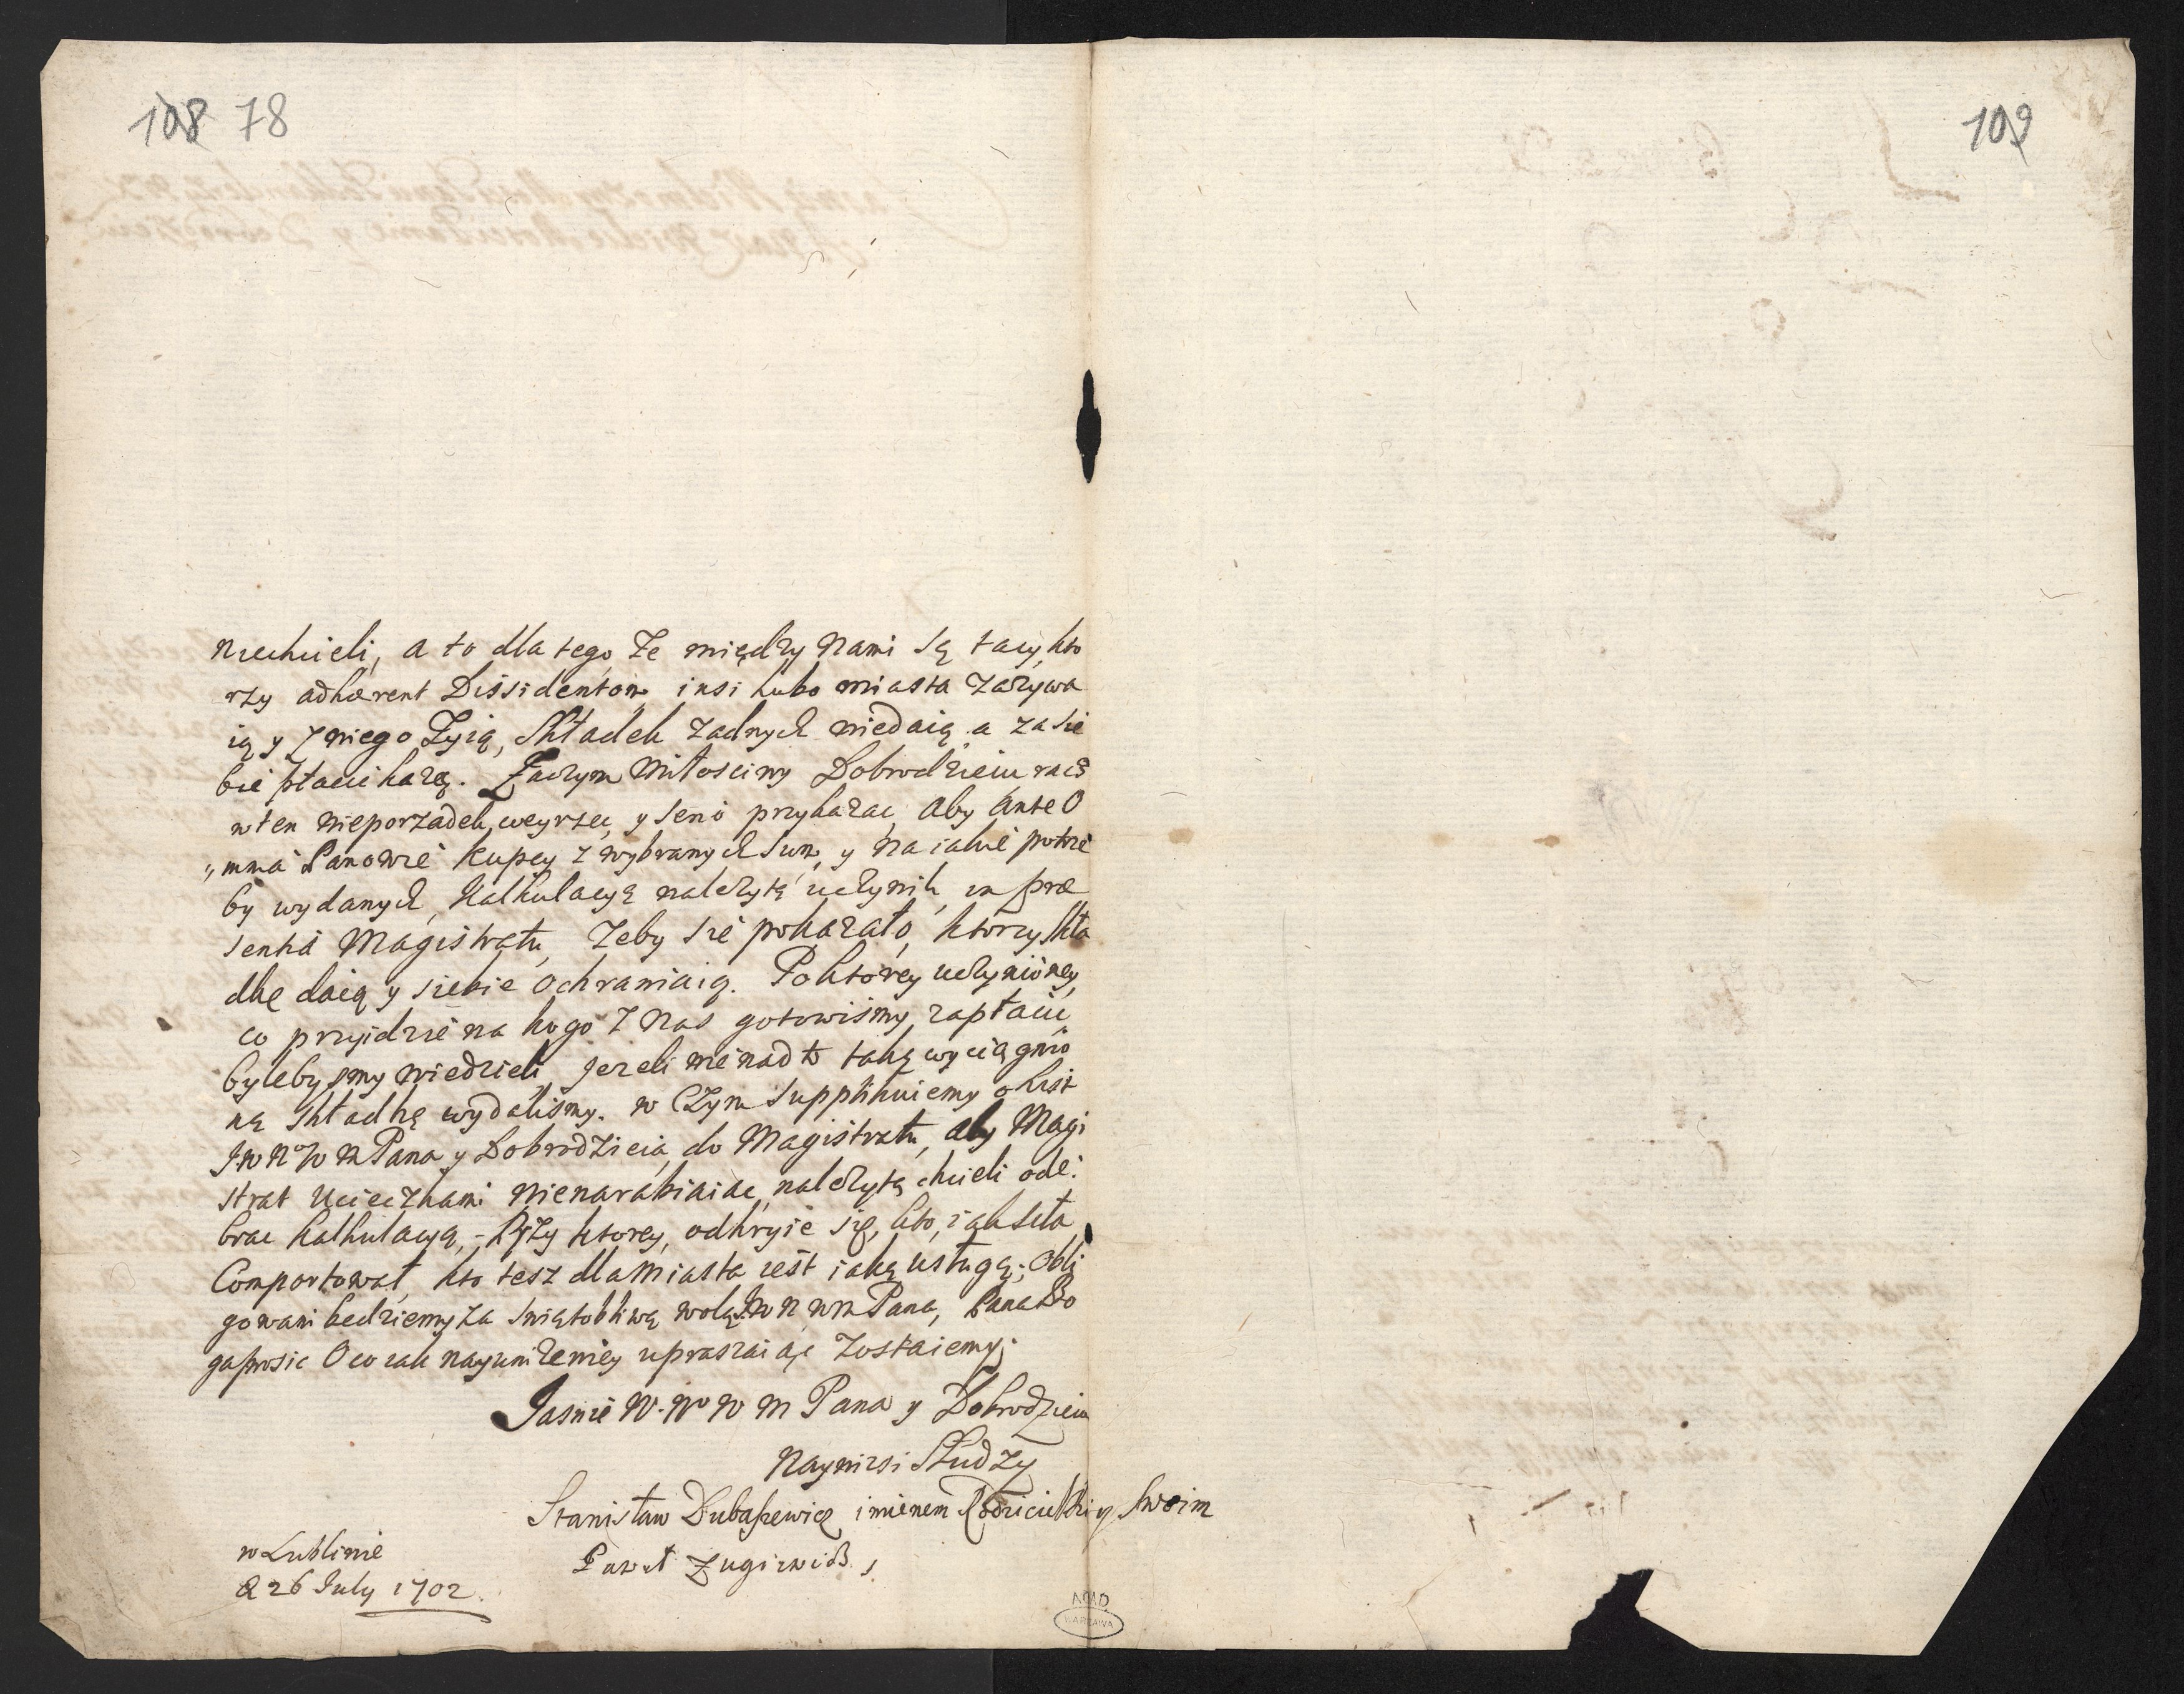 108 78
109
niechcieli, a to dla tego ze między nami są tacy kto
rzy adhærent Dissidentom, insi lubo miasta zazywa
ią y z niego Zyią, Składek zadnych niedaią, a za sie
bie płacic kazą. Zaczym Miłosciwy Dobrodzieiu racz
w ten nieporzadek weyrzec, y serio przykazac, aby ante O
mnia Panowie Kupcy z wybranych Sum, y na iakie potrze
by wydanych, Kalkulacyą nalezytą uczynili, in præ
sentia Magistratu, zeby sie pokazało, ktorzy skła
dkę daią y siebie ochraniaią. Po ktorey uczynioney,
co przyidzie na kogo z nas gotowismy zapłacic
bylebysmy wiedzieli, jezeli nie nad to taką wyciągnio
ną składkę wydalismy. w Czym supplikuiemy o List
JW N W M Pana y Dobrodzieia, do Magistratu, aby Magi
strat ucieczkami nienarabiaiac, nalezytą chcieli ode:
brac kalkulacyą, przy ktorey, odkryie się, kto, iak sie
Comportował, kto tesz dla Miasta iest iaką usługą; Obli
gowani bedziemy za swiątobliwą wolą JW N W M Pana, Pana Bo
ga prosic O co iak nayunizeniey upraszaiąc zostaiemy;
Jasnie W. W W M Pana y Dobrodzieia
Naynizsi Słudzy
Stanisław Dubaszewicz imienem Rodzicielki y Swoim
Paweł
w Lublinie
d 26 July 1702.
AGAD
WARSZAWA